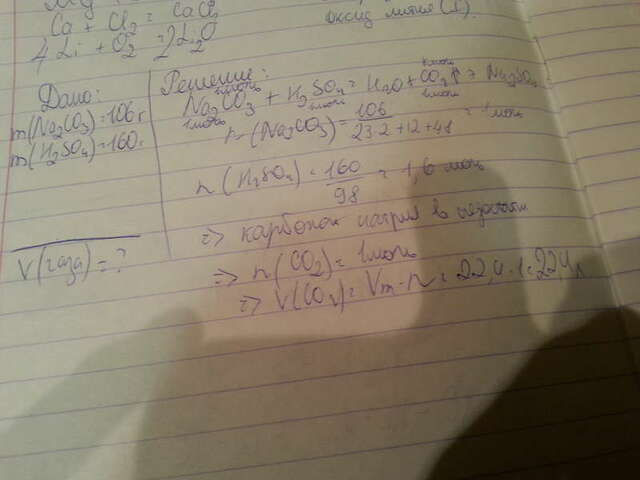 Ca + Cl₂ = CaCl₂
4Li + O₂ = 2Li₂O
оксид лития (I).
Дано:
m(Na₂CO₃) = 106 г
m(H₂SO₄) = 160 г
V(газа) = ?
Решение:
Na₂CO₃ + H₂SO₄ = H₂O + CO₂↑ + Na₂SO₄
1моль 1моль 1моль
n(Na₂CO₃) = 106 / 23·2+12+48 = 1моль
n(H₂SO₄) = 160 / 98 = 1,6 моль
=> карбонат натрия в
=> n(CO₂) = 1моль
=> V(CO₂) = Vm·n = 22,4·1 = 22,4 л